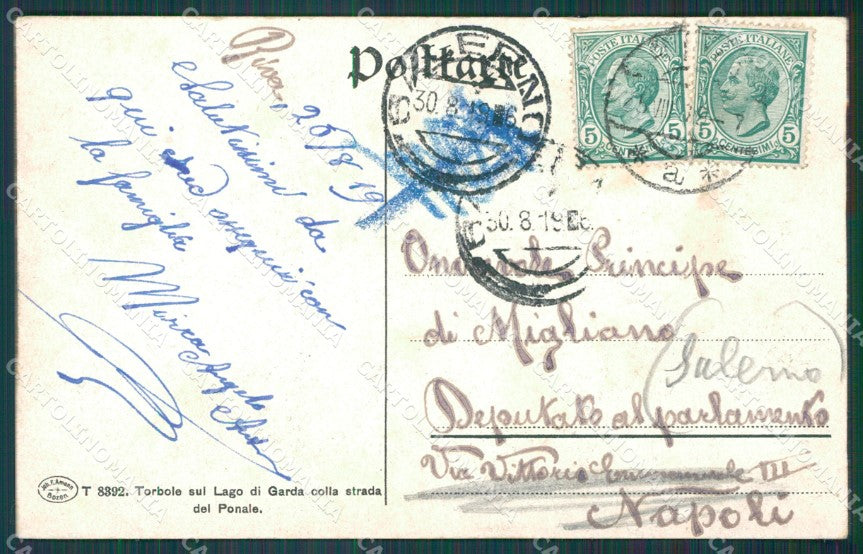 Postkarte
Riva, 26/8 19
Salutissimi da
qui ed ossequi con
la famiglia
Mirra Angelo
SALERNO
30.8.19 6
30.8.19 6
POSTE ITALIANE
5 CENTESIMI 5
POSTE ITALIANE
5 CENTESIMI 5
Onorevole Principe
di Migliano
(Salerno)
Deputato al parlamento
Via Vittorio III
Napoli
Joh. F. Amonn
Bozen
T 8392. Torbole sul Lago di Garda colla strada
del Ponale.
CARTOLINOMANIA